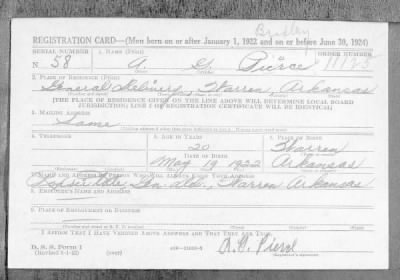 Bradley
REGISTRATION CARD—(Men born on or after January 1, 1922 and on or before June 30, 1924)
SERIAL NUMBER 1. NAME (Print) ORDER NUMBER
N 58 A. G. Pierce
2. PLACE OF RESIDENCE (Print)
General Delivery, Warren, Arkansas
[THE PLACE OF RESIDENCE GIVEN ON THE LINE ABOVE WILL DETERMINE LOCAL BOARD
JURISDICTION; LINE 2 OF REGISTRATION CERTIFICATE WILL BE IDENTICAL]
3. MAILING ADDRESS
Same
4. TELEPHONE 5. AGE IN YEARS 6. PLACE OF BIRTH
20 Warren
DATE OF BIRTH
May 19 1922 Arkansas
7. NAME AND ADDRESS OF PERSON WHO WILL ALWAYS KNOW YOUR ADDRESS
Gen. del., Warren Arkansas
8. EMPLOYER'S NAME AND ADDRESS
9. PLACE OF EMPLOYMENT OR BUSINESS
I AFFIRM THAT I HAVE VERIFIED ABOVE ANSWERS AND THAT THEY ARE TRUE.
D. S. S. Form 1
(over) A. G. Pierce
(Registrant's signature)